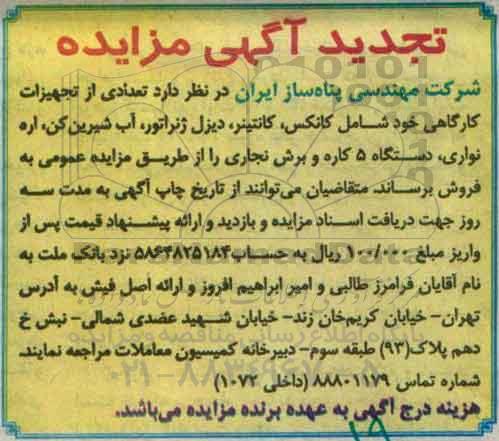 تجدید آگهی مزایده
شرکت مهندسی پناه‌ساز ایران در نظر دارد تعدادی از تجهیزات
کارگاهی خود شامل کانکس، کانتینر، دیزل ژنراتور، آب شیرین‌کن، اره
نواری، دستگاه ۵ کاره و برش نجاری را از طریق مزایده عمومی به
فروش برساند. متقاضیان می‌توانند از تاریخ چاپ آگهی به مدت سه
روز جهت دریافت اسناد مزایده و بازدید و ارائه پیشنهاد قیمت پس از
واریز مبلغ ۱۰۰/۰۰۰ ریال به حساب ۵۸۶۴۸۲۵۱۸۴ نزد بانک ملت به
نام آقایان فرامرز طالبی و امیر ابراهیم افروز و ارائه اصل فیش به آدرس
تهران- خیابان کریم‌خان زند- خیابان شهید عضدی شمالی- نبش خ
دهم پلاک (۹۳) طبقه سوم- دبیرخانه کمیسیون معاملات مراجعه نمایند.
شماره تماس ۸۸۸۰۱۱۷۹ (داخلی ۱۰۷۳)
هزینه درج آگهی به عهده برنده مزایده می‌باشد.